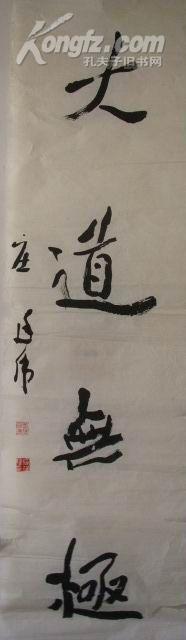 Kongfz.com
孔夫子旧书网
大道無極